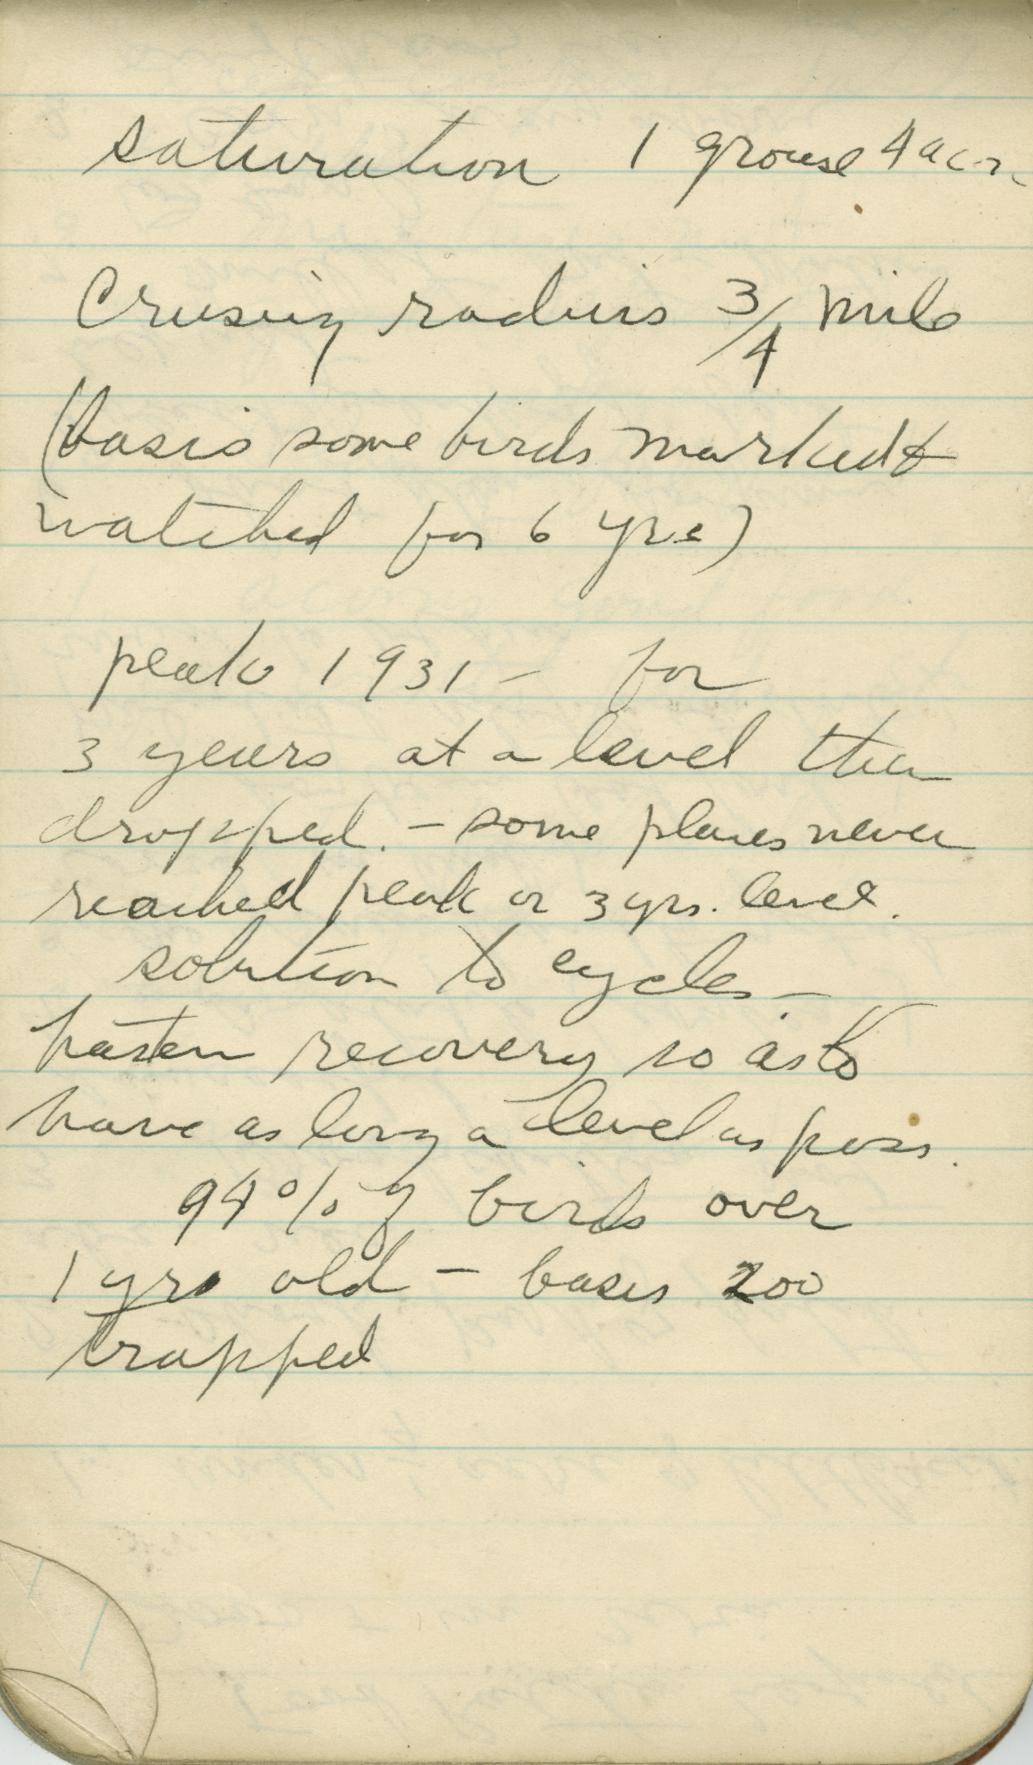 saturation 1 grouse 4 acr.
Crusing radius 3/4 mile
(basis some birds marked &
watched for 6 yrs)
peak 1931 - for
3 years at a level then
dropped. - some places never
reached peak or 3 yrs. level.
solution to cycles -
hasten recovery so as to
have as long a level as poss.
94% of birds over
1 yrs old - basis 200
trapped